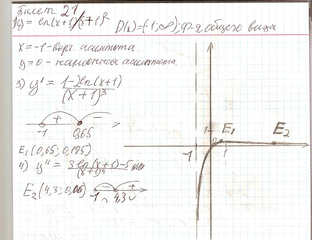 Билет 21
y = ln(x+1)/(x+1)² D(x)=(-1;∞); ф-я общего вида
x=-1-верт. асимптота.
y=0-наклонная асимптота.
3) y' = 1-2ln(x+1)/(x+1)³
+ -
-1 0,65
E₁(0,65; 0,185)
4) y'' =
E₂(4,3; 0,06) - +
-1 4,3
1 E₁ E₂
-1 1